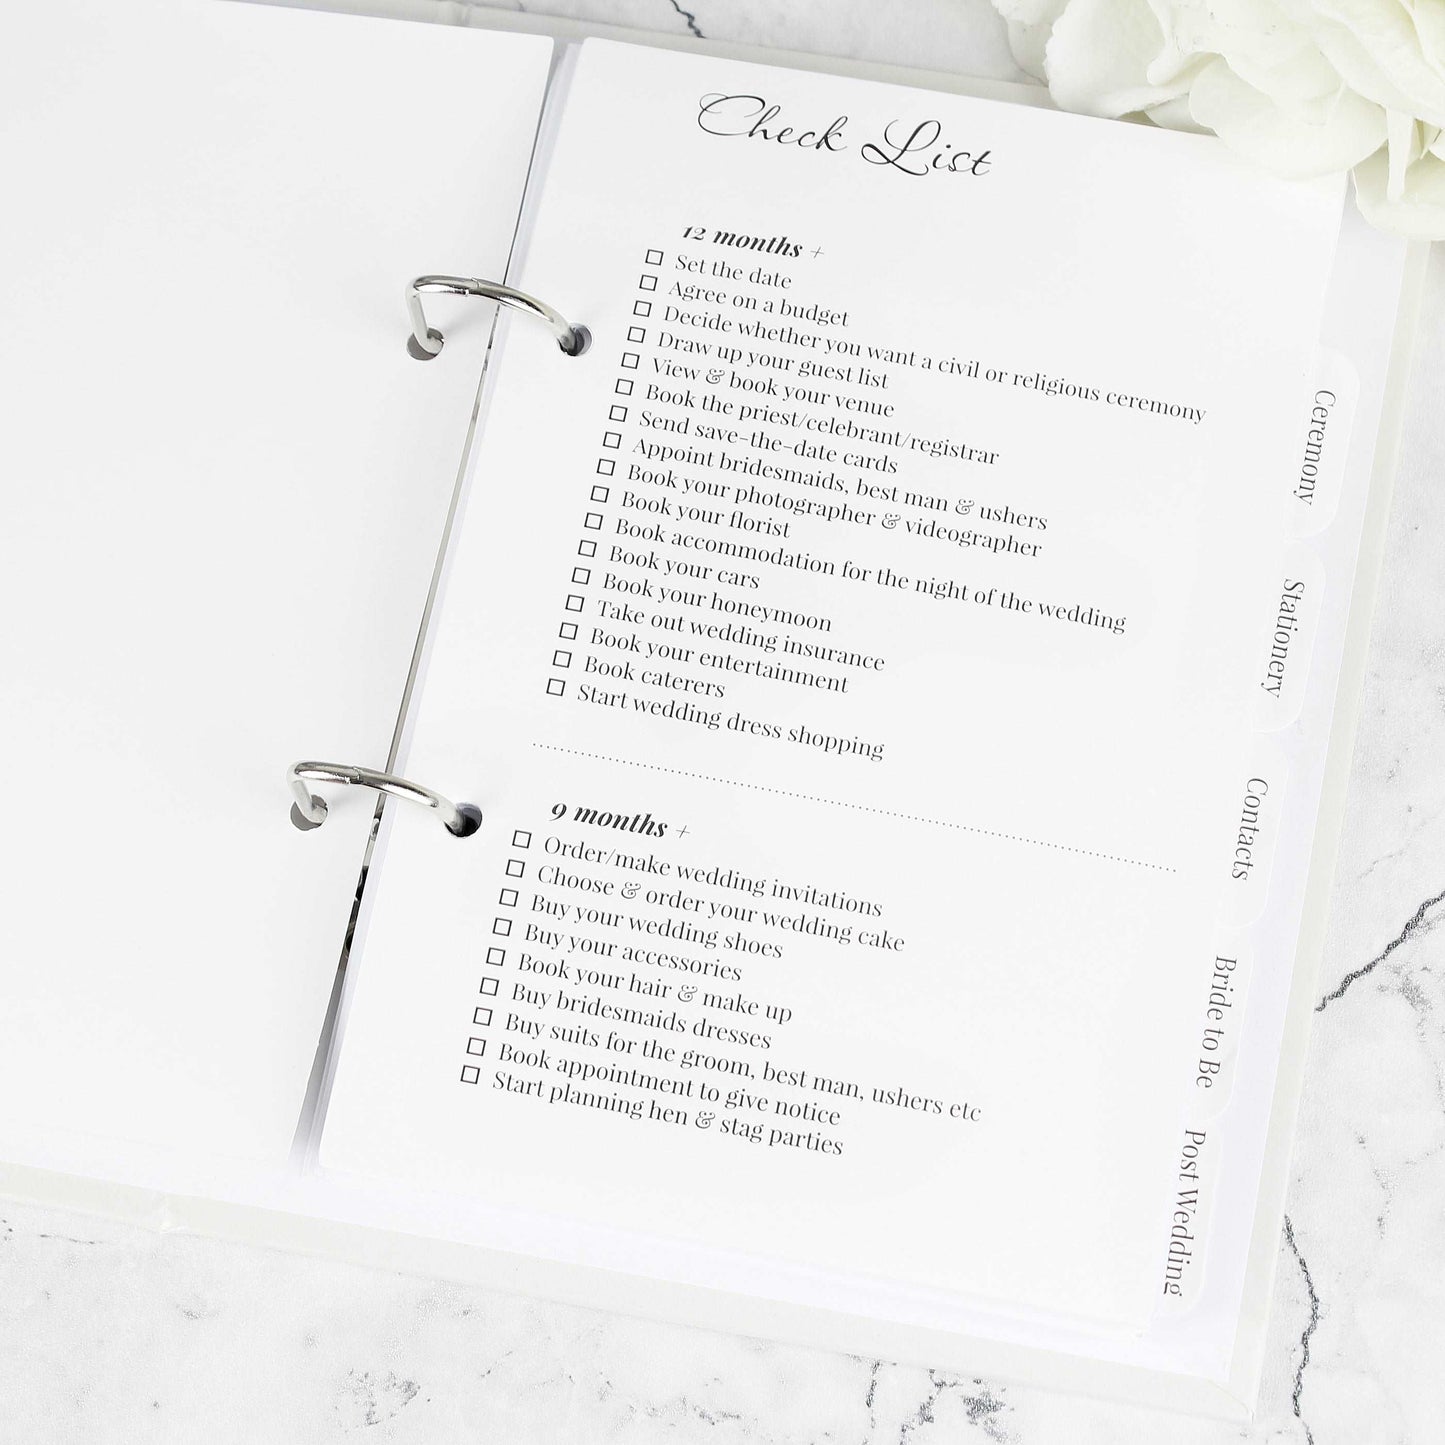 Check List
12 months +
Set the date
Agree on a budget
Decide whether you want a civil or religious ceremony
Draw up your guest list
View & book your venue
Book the priest/celebrant/registrar
Send save-the-date cards
Appoint bridesmaids, best man & ushers
Book your photographer & videographer
Book your florist
Book accommodation for the night of the wedding
Book your cars
Book your honeymoon
Take out wedding insurance
Book your entertainment
Book caterers
Start wedding dress shopping
9 months +
Order/make wedding invitations
Choose & order your wedding cake
Buy your wedding shoes
Buy your accessories
Book your hair & make up
Buy bridesmaids dresses
Buy suits for the groom, best man, ushers etc
Book appointment to give notice
Start planning hen & stag parties
Ceremony
Stationery
Contacts
Bride to Be
Post Wedding